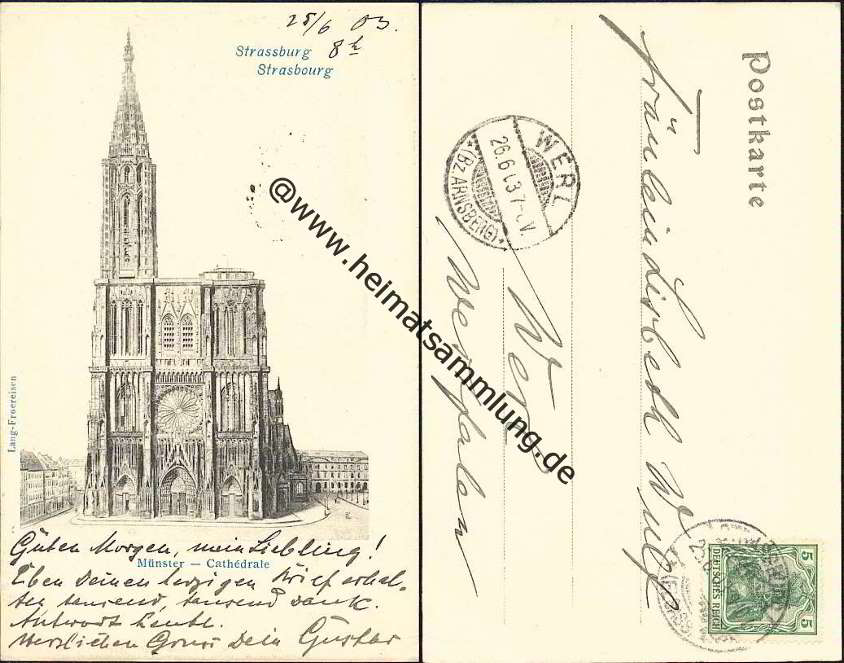 25/6 03.
8 h
Strassburg
Strasbourg
Lang-Froereisen
Guten Morgen, mein Liebling!
Münster — Cathédrale
Eben Deinen herzigen Brief erhal-
ten tausend, tausend Dank.
Antwort heute.
Herzlichen Gruss Dein Gustav
@www.heimatsammlung.de
Postkarte
Fräulein Lisbeth Wulf
Werl
Westfalen
WERL
26.6.03 7-8V.
*(BZ ARNSBERG)*
5
DEUTSCHES REICH
5